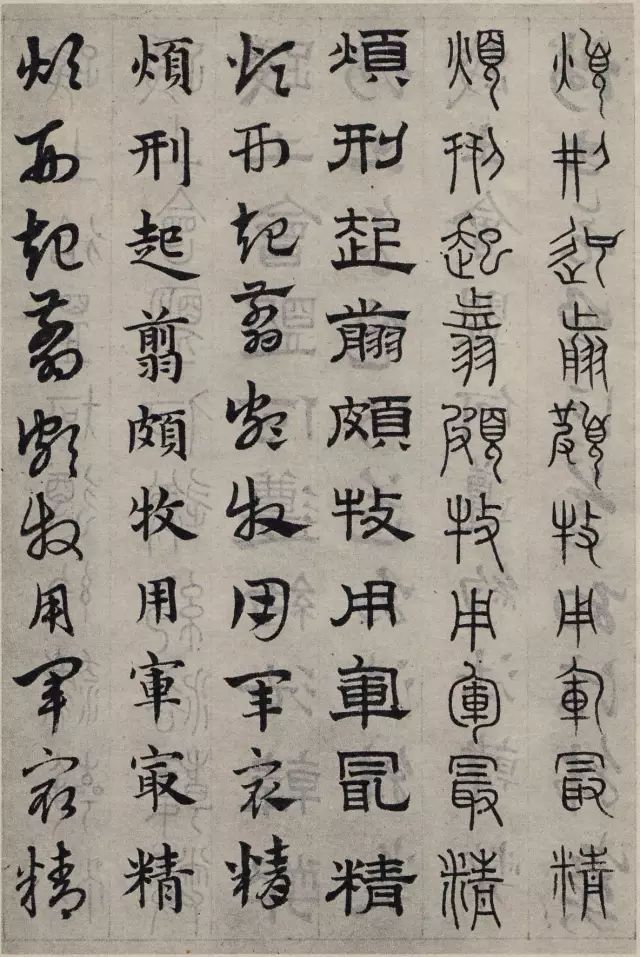 煩刑起翦頗牧用軍最精
煩刑起翦頗牧用軍最精
煩刑起翦頗牧用軍最精
煩刑起翦頗牧用軍㝡精
煩刑起翦頗牧用軍㝡精
煩刑起翦頗牧用軍㝡精